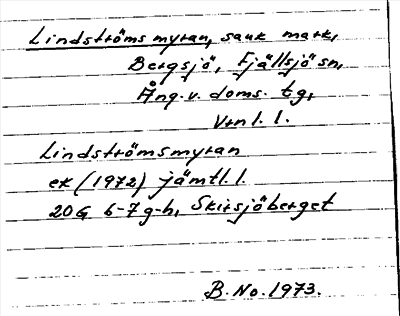 Lindströmsmyran, sank mark,
Bergsjö, Fjällsjö sn,
Ång. v. doms. tg,
Vrnl. l.
Lindströmsmyran
ek (1972) jämtl. l.
20G 6-7 g-h, Skirsjöberget
B. No. 1973.